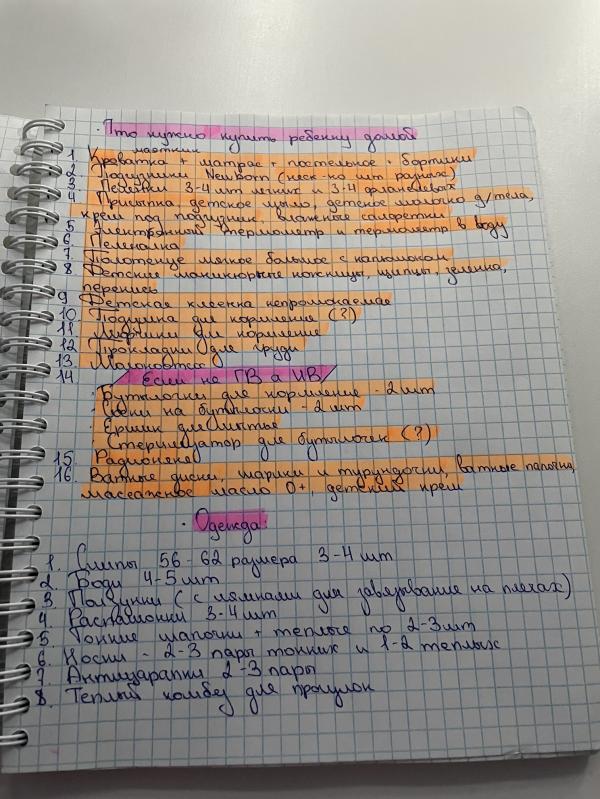 · Что нужно купить ребенку домой
маятник
1. Кроватка + матрас + постельное + бортики
2 Подгузники NewBorn (неск-ко шт разных)
3 Пеленки 3-4 шт легких и 3-4 фланелевых
4 Присыпка, детское мыло, детское молочко д/тела,
крем под подгузник, влажные салфетки
5 Электронный термометр и термометр в воду
6. Пеленалка
7. Полотенце мягкое большое с капюшоном
8 Детские маникюрные ножницы, щипцы, зеленка,
перекись
9 Детская клеенка непромокаемая
10 Подушка для кормления (?)
11 Лифчики для кормления
12 Прокладки для груди
13 Молокоотсос
14 Если не ГВ а ИВ
· Бутылочки для кормления - 2 шт
· Соски на бутылочки - 2 шт
· Ершик для мытья
Стерилизатор для бутылочек (?)
15 Радионяня
16. Ватные диски, шарики и турундочки, ватные палочки,
массажное масло 0+, детский крем
· Одежда:
1. Слипы 56-62 размера 3-4 шт
2. Боди 4-5 шт
3. Ползунки (с лямками для завязывание на плечах)
4. Распашонки 3-4 шт
5 Тонкие шапочки + теплые по 2-3 шт
6. Носки - 2-3 пары тонких и 1-2 теплых
7 Антицарапки 2-3 пары
8. Теплый комбез для прогулок